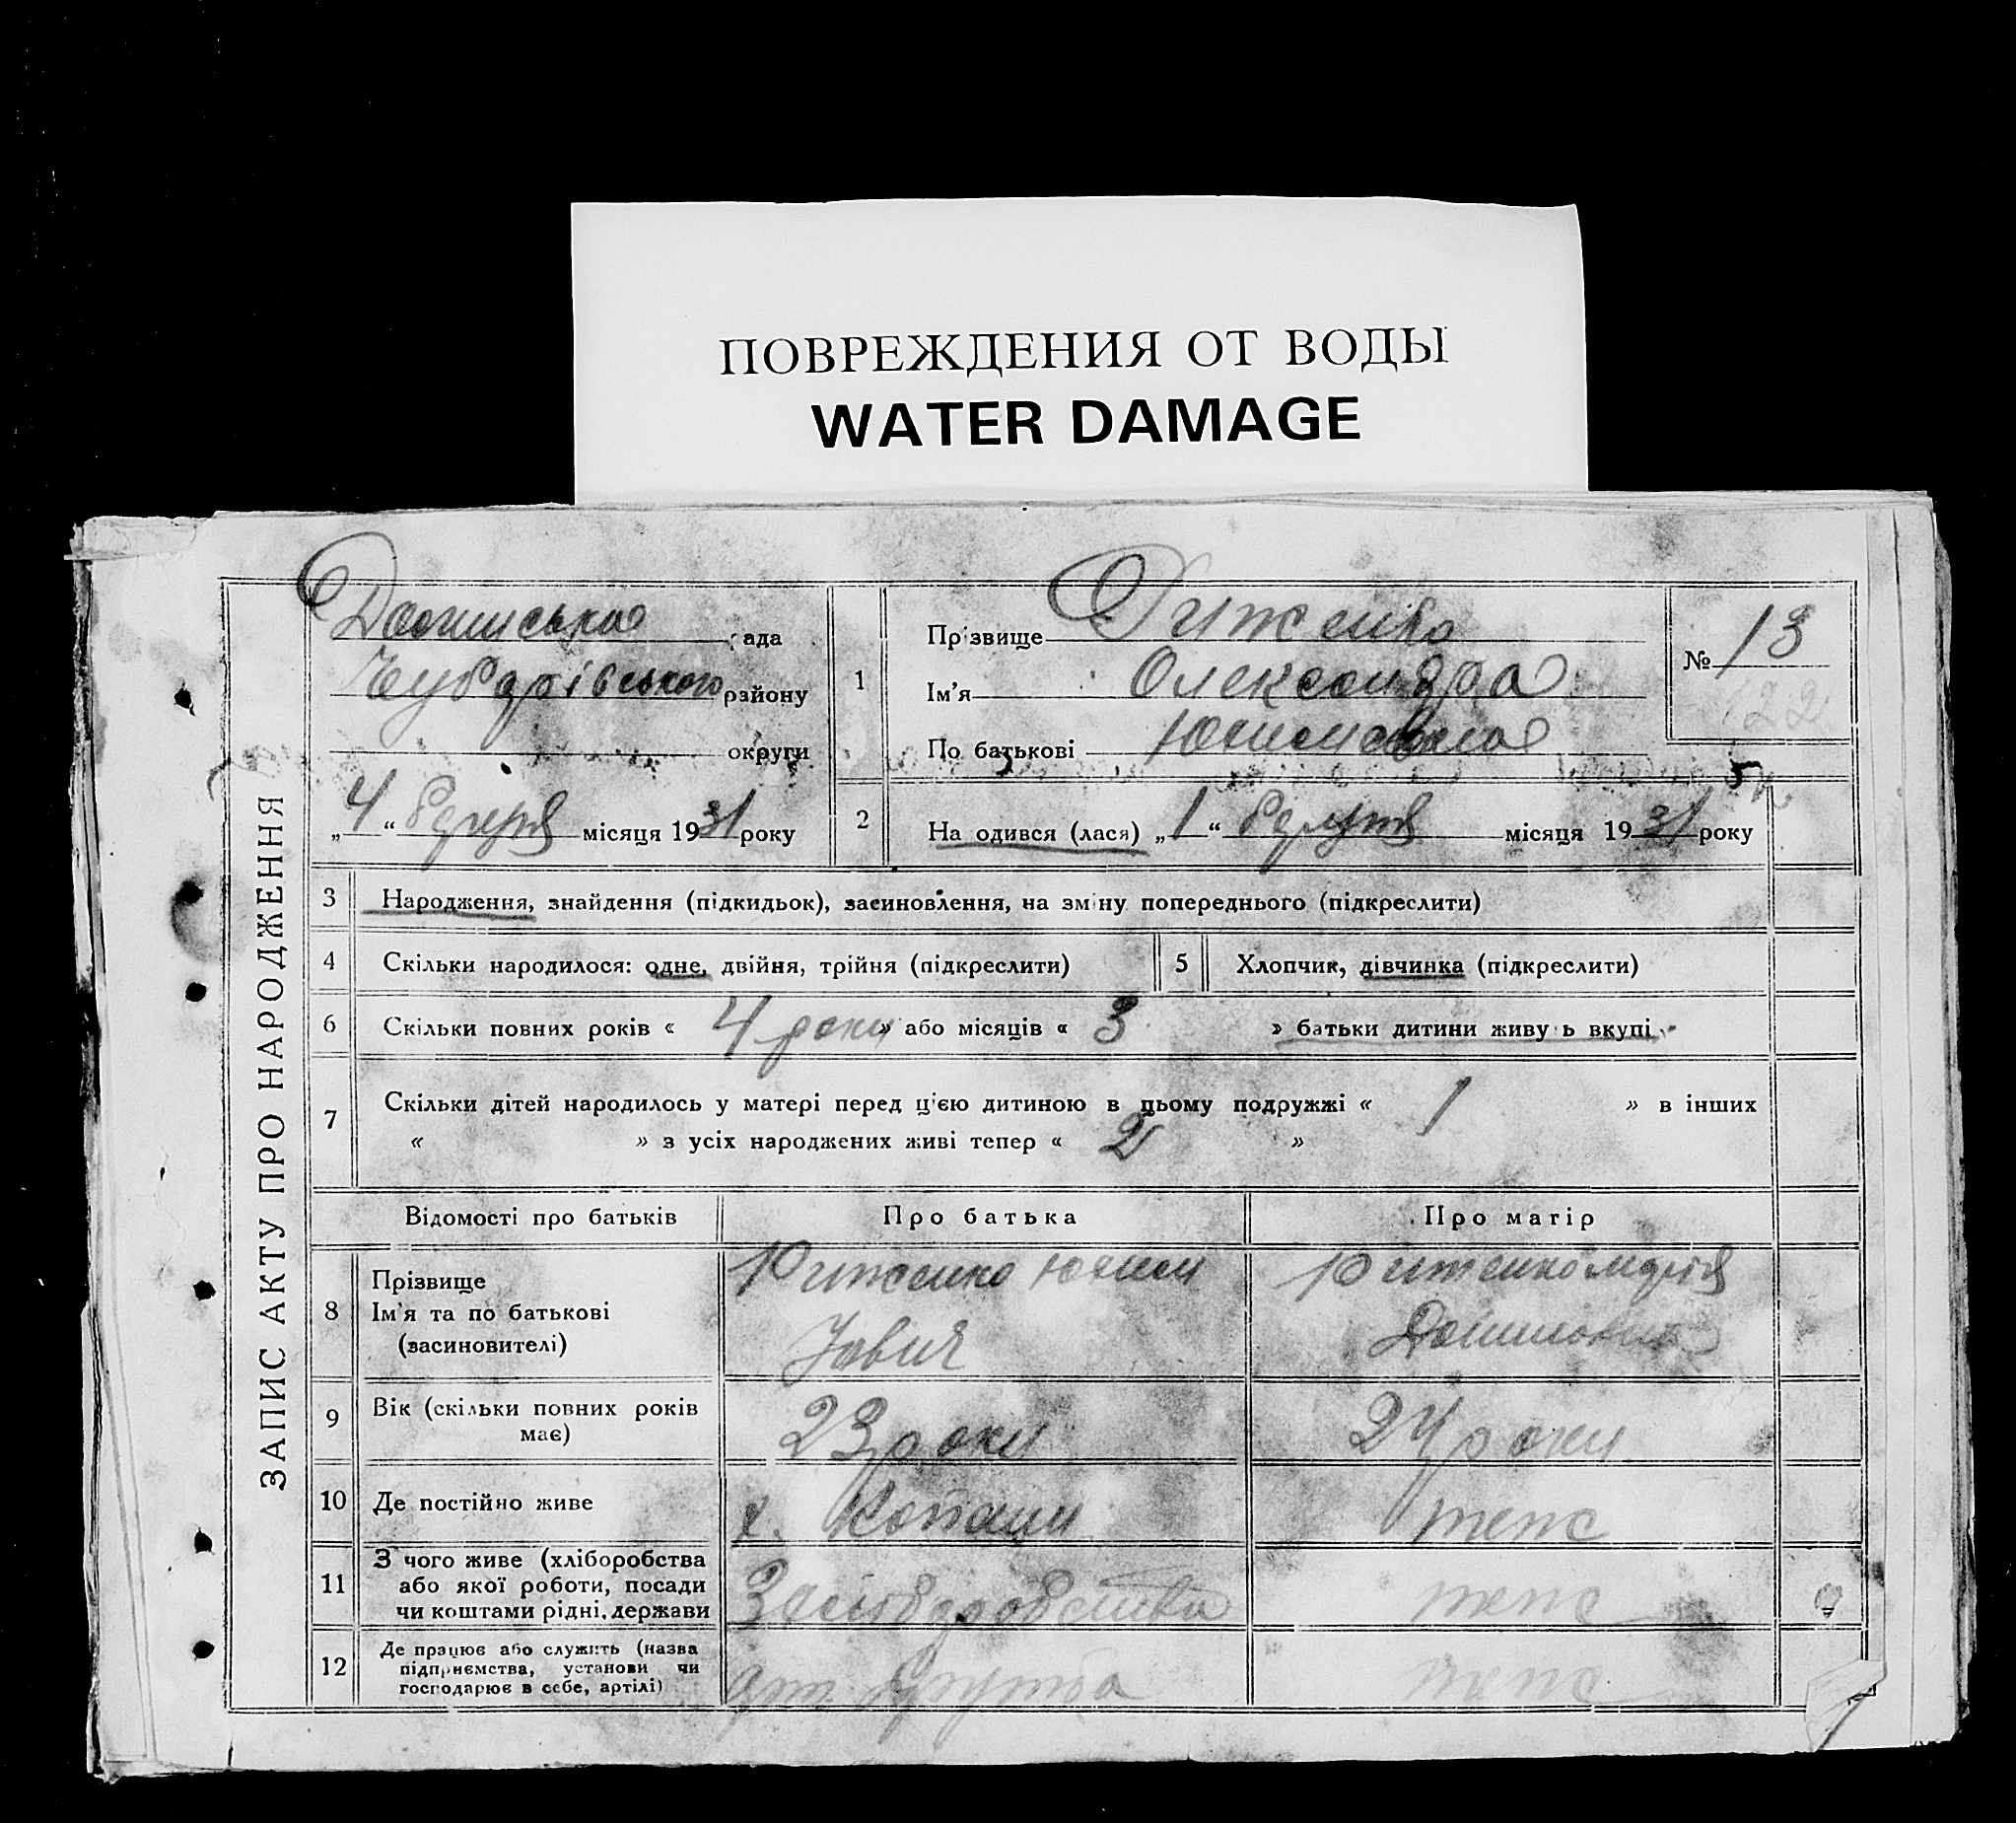 ПОВРЕЖДЕНИЯ ОТ ВОДЫ
WATER DAMAGE
ЗАПИС АКТУ ПРО НАРОДЖЕННЯ
ада
Чубарівського району
округи
„4“ місяця 1931 року
1
Прізвище Риженко
Ім'я Олександра
По батькові Юхимовна
№ 13
122
2
На одився (лася) „1“ місяця 1931 року
3 Народження, знайдення (підкидьок), засиновлення, на зміну попереднього (підкреслити)
4 Скільки народилося: одне, двійня, трійня (підкреслити)
5 Хлопчик, дівчинка (підкреслити)
6 Скільки повних років « 4 роки » або місяців « 3 » батьки дитини живу ь вкупі
7 Скільки дітей народилось у матері перед цією дитиною в цьому подружжі « 1 » в інших
« » з усіх народжених живі тепер « 2 »
Відомості про батьків Про батька Про матір
8 Прізвище
Ім'я та по батькові
(засиновителі)
Риженко Юхим
Риженко Марія
9 Вік (скільки повних років
має)
23 роки
24 роки
10 Де постійно живе
х. Копани
теж
11 З чого живе (хліборобства
або якої роботи, посади
чи коштами рідні, держави
Хліборобства
теж
12 Де працює або служить (назва
підприємства, установи чи
господарює в себе, артілі)
теж